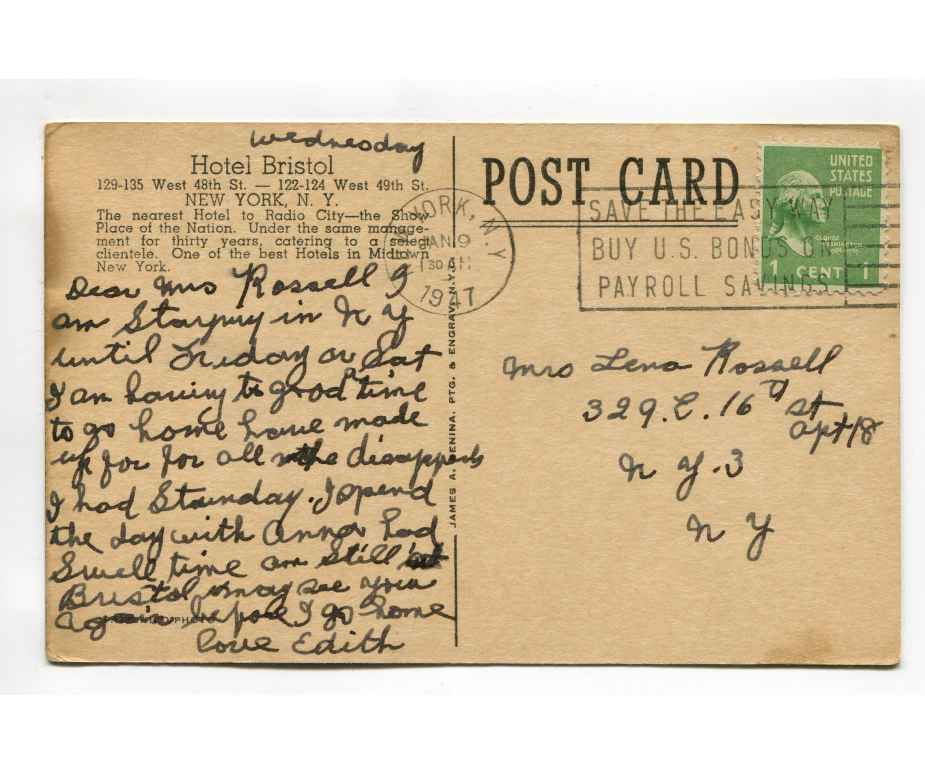 Wednesday
Hotel Bristol
129-135 West 48th St. — 122-124 West 49th St.
NEW YORK, N. Y.
The nearest Hotel to Radio City—the Show
Place of the Nation. Under the same manage-
ment for thirty years, catering to a select
clientele. One of the best Hotels in Midtown
New York.
Dear Mrs Rossell I
am Staying in N Y
until Friday or Sat
I am having to good time
to go home have made
up for for all the
I had Stunday. I spend
the day with Anna had
Swell time am still at
Bristol may see you
again before I go home
love Edith
JAMES A. PTG. & ENGRAV. N.Y.
POST CARD
YORK, N.Y.
JAN 9
30 AM
1947
SAVE THE EASY WAY
BUY U.S. BONDS ON
PAYROLL SAVINGS
UNITED
STATES
POSTAGE
GEORGE
WASHINGTON
1 CENT 1
Mrs Lena Rossell
329. E. 16th St
Apt 18
N Y. 3
N Y